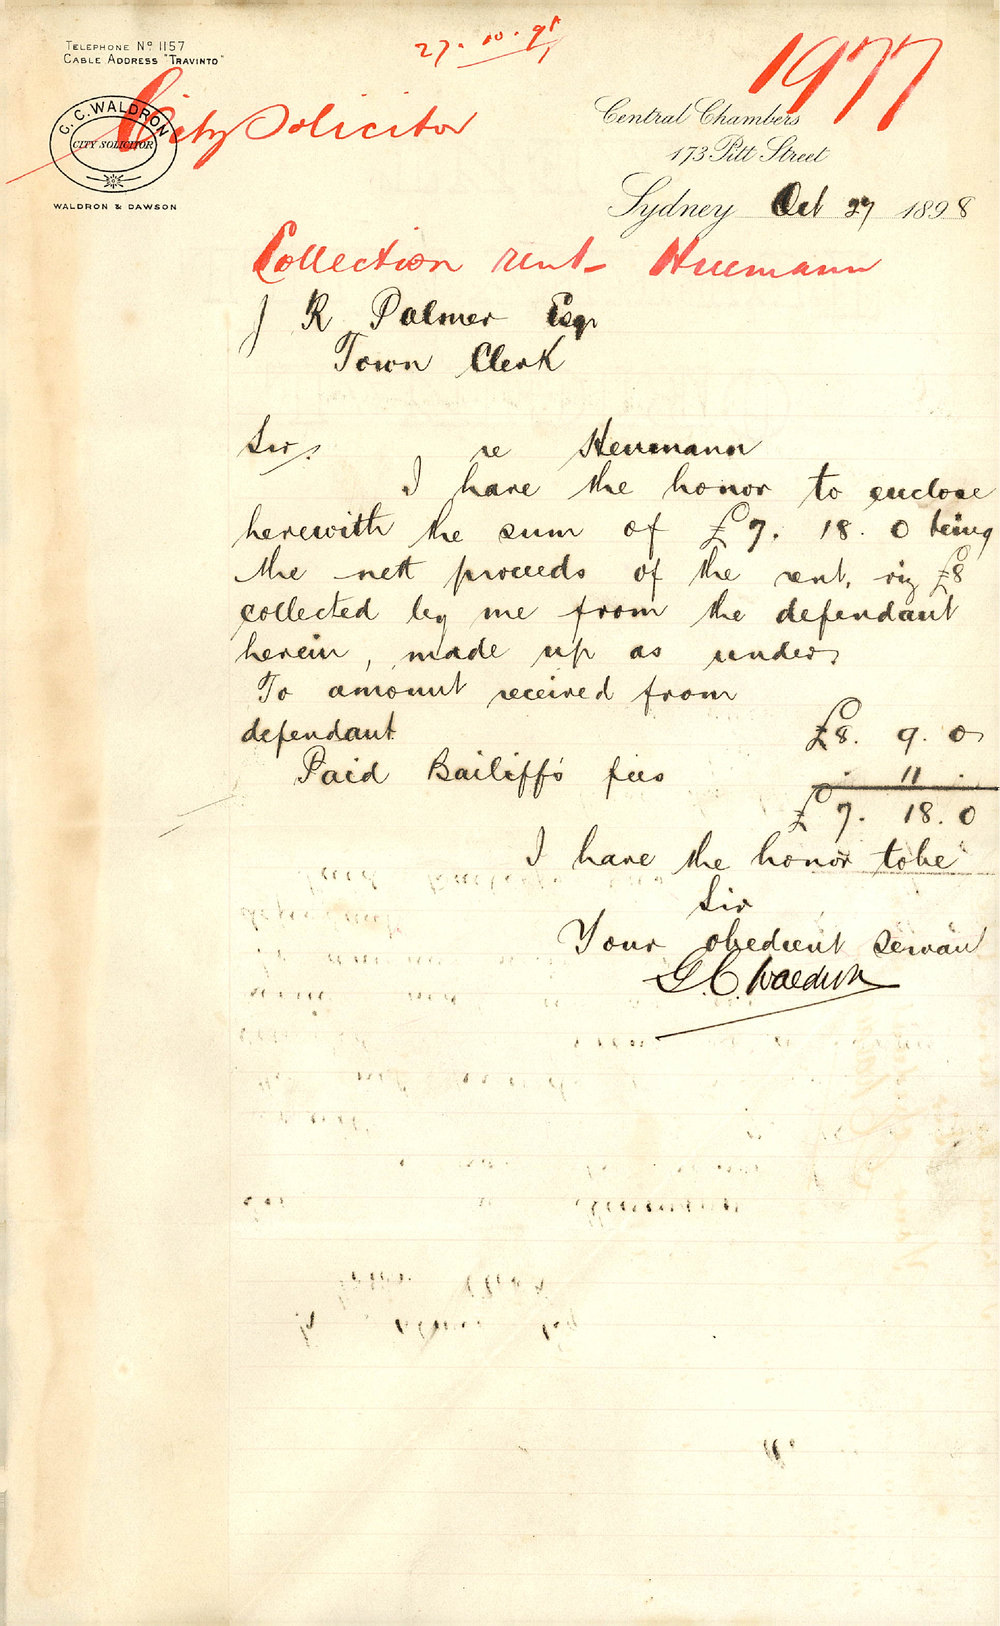 27.10.98
1977
TELEPHONE No 1157
CABLE ADDRESS "TRAVINTO"
C. C. WALDRON
CITY SOLICITOR
WALDRON & DAWSON
City Solicitor
Central Chambers
173 Pitt Street
Sydney Oct 27 1898
Collection rent - Herrmann
J R Palmer Esqr
Town Clerk
Sir, re Herrmann
I have the honor to enclose
herewith the sum of £7. 18. 0 being
the nett proceeds of the rent, viz £8
collected by me from the defendant
herein, made up as under,
To amount received from
defendant £8. 9. 0
Paid Bailiff's fees . 11 .
£7. 18. 0
I have the honor to be
Sir
Your obedient servant
G. C. Waldron